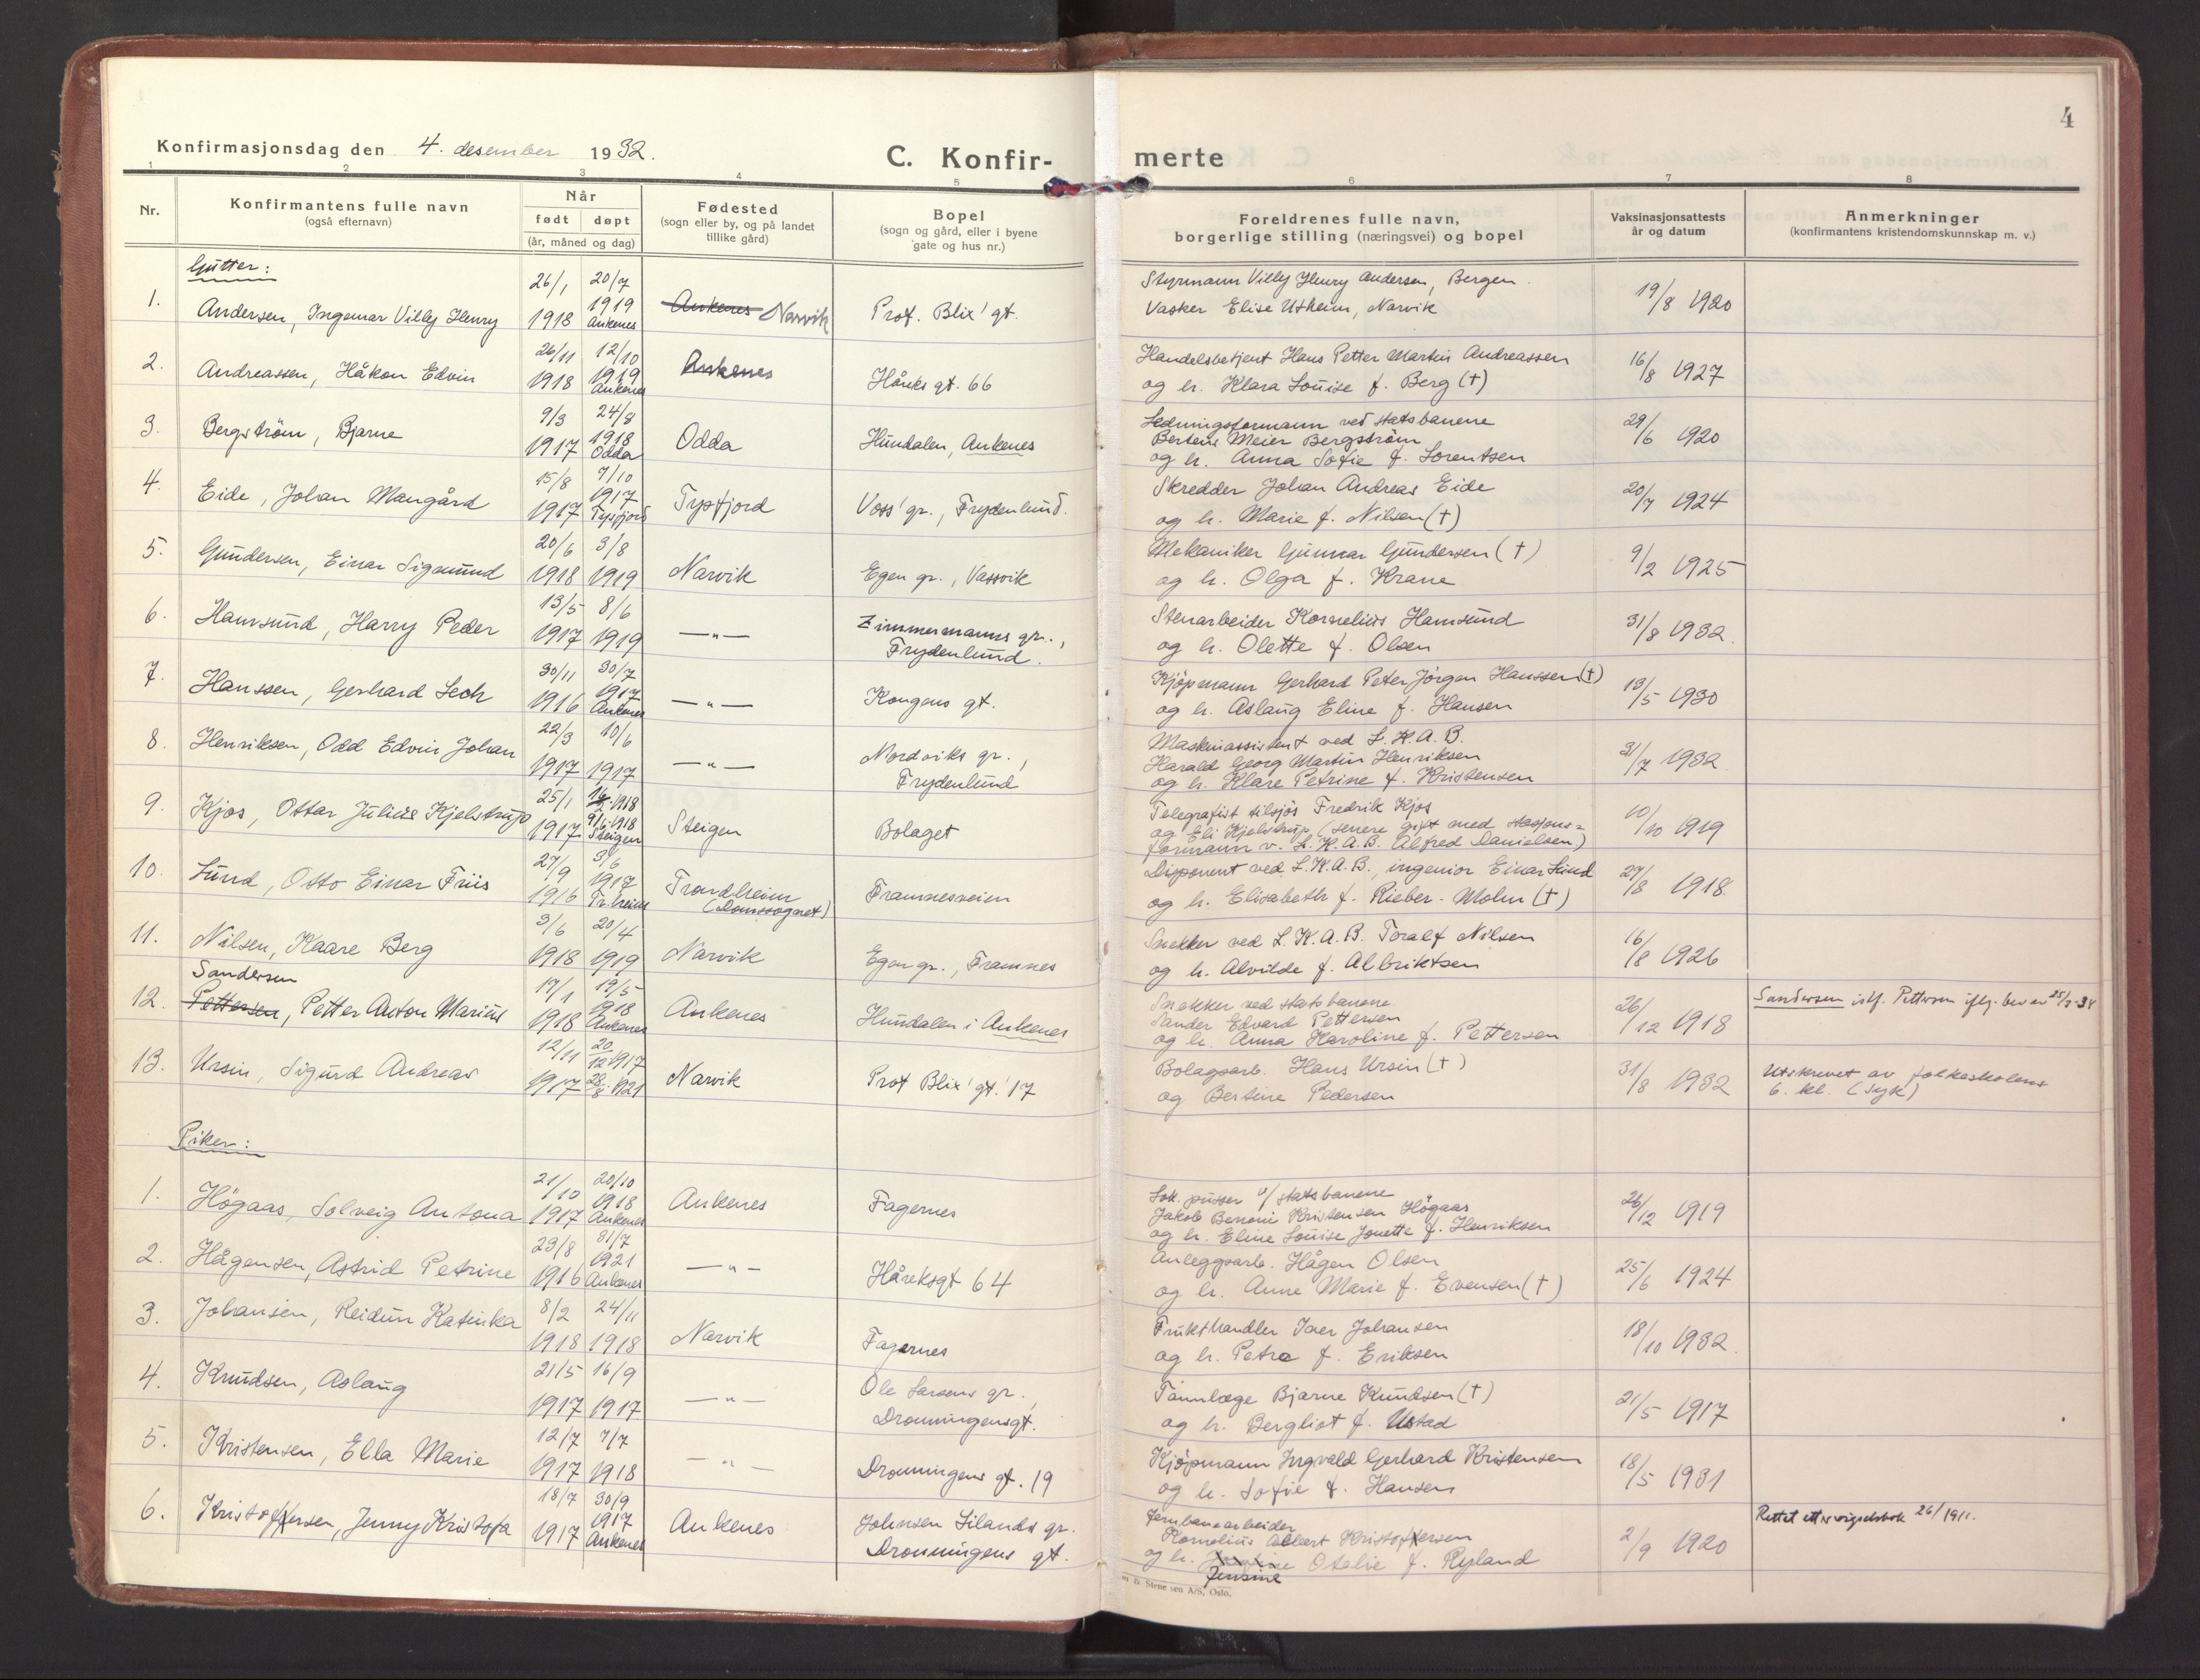 4
Konfirmasjonsdag den 4. desember 1932.
C. Konfir-
merte
1 2 3 4 5 6 7 8
Nr.
Konfirmantens fulle navn
(også efternavn)
Når
født døpt
(år, måned og dag)
Fødested
(sogn eller by, og på landet
tillike gård)
Bopel
(sogn og gård, eller i byene
gate og hus nr.)
Foreldrenes fulle navn,
borgerlige stilling (næringsvei) og bopel
Vaksinasjonsattests
år og datum
Anmerkninger
(konfirmantens kristendomskunnskap m. v.)
Gutter:
26/1 20/7 Styrmann Villy Henry Andersen, Bergen.
1. Andersen, Ingemar Villy Henry 1918 1919 Ankenes Ankenes Narvik Prof. Blix' gt. Vasker Elise Utheim, Narvik 19/8 1920
26/11 12/10 Handelsbetjent Hans Petter Martin Andreassen
2. Andreassen, Håkon Edvin 1918 1919 Ankenes Ankenes Håreks gt. 66 og h. Klara Louise f. Berg (†) 16/8 1927
9/3 24/8 Ledningsformann ved statsbanene
3. Bergström, Bjarne 1917 1918 Odda Odda Hundalen, Ankenes Meier Bergström 29/6 1920
og h. Anna Sofie f. Lorentsen
15/8 7/10 Skredder Johan Andreas Eide
4. Eide, Johan Mangård 1917 1917 Tysfjord Tysfjord Voss' gr., Frydenlund. og h. Marie f. Nilsen (†) 20/7 1924
20/6 3/8 Mekaniker Gunnar Gundersen (†)
5. Gundersen, Einar Sigmund 1918 1919 Narvik Egen gr., Vassvik og h. Olga f. Krane 9/2 1925
13/5 8/6 Zimmermanns gr., Stenarbeider Kornelius Hamsund
6. Hamsund, Harry Peder 1917 1919 —"— Frydenlund. og h. Olette f. Olsen 31/8 1932.
30/11 30/7 Kjøpmann Gerhard Peter Jörgen Hanssen (†)
7. Hanssen, Gerhard Lech 1916 1917 Ankenes —"— Kongens gt. og h. Aslaug Eline f. Hansen 13/5 1930
22/3 10/6 Nordviks gr., Maskinassistent ved L.K.A.B.
8. Henriksen, Odd Edvin Johan 1917 1917 —"— Frydenlund Harald Georg Martin Henriksen 31/7 1932
og h. Klare Petrine f. Kristensen
25/1 1918 Telegrafist tilsjøs Fredrik Kjos
9. Kjos, Ottar Julius Kjelstrup 1917 9/6 1918 Steigen Steigen Bolaget og Eli Kjelstrup (senere gift med stasjons= 10/10 1919
formann v. L.K.A.B. Alfred Danielsen)
27/9 3/6 Disponent ved L.K.A.B., ingeniør Einar Lund
10. Lund, Otto Einar Friis 1916 1917 Tr.heim Trondheim (Domssognet) Framnesveien og h. Elisabeth f. Rieber-Mohn (†) 27/8 1918
3/6 20/4 Snekker ved L.K.A.B. Toralf Nilsen
11. Nilsen, Kaare Berg 1918 1919 Narvik Egen gr., Framnes og h. Alvilde f. Albriktsen 16/8 1926
Sandersen 17/1 19/5 Snekker ved statsbanene
12. Pettersen, Petter Anton Marius 1918 1918 Ankenes Ankenes Hundalen i Ankenes Sander Edvard Pettersen 26/12 1918 Sandersen istf. Pettersen iflg. bev av
og h. Anna Karoline f. Pettersen
12/11 20/12 1917 Bolagsarb. Hans Ursin (†)
13. Ursin, Sigurd Andreas 1917 28/8 1921 Narvik Prof Blix' gt. 17 og Bertine Pedersen 31/8 1932 Utskrevet av folkeskolens
6. kl. (syk)
Piker:
21/10 20/10 Lok. pusser v/ statsbanene
1. Högaas, Solveig Antona 1917 1918 Ankenes Ankenes Fagernes Jakob Benoni Kristensen Högaas 26/12 1919
og h. Eline Louise Jonette f. Henriksen
29/8 31/7 Anleggsarb. Hågen Olsen
2. Hågensen, Astrid Petrine 1916 1921 Ankenes —"— Håreksgt 64 og h. Anne Marie f. Evensen (†) 25/6 1924
8/2 24/11 Frukthandler Iver Johansen
3. Johansen, Reidun Katinka 1918 1918 Narvik Fagernes og h. Petra f. Eriksen 18/10 1932.
21/5 16/9 Ole Larsens gr., Tannlæge Bjarne Knudsen (†)
4. Knudsen, Aslaug 1917 1917 —"— Dronningensgt. og h. Bergliot f. Ustad 21/5 1917
12/7 7/7 Kjöpmann Ingvald Gerhard Kristensen
5. Kristensen, Ella Marie 1917 1918 —"— Dronningens gt. 19 og h. Sofie f. Hansen 18/5 1931
18/7 30/9 Johnsen Silands gr. Jernbanearbeider Rettet etter vigselsbok 26/1911.
6. Kristoffersen, Jenny Kristofa 1917 1917 Ankenes Ankenes Dronningens gt. Kornelius Albert Kristoffersen 2/9 1920
og h. Jensine Otelie f. Ryland
A/S, Oslo.